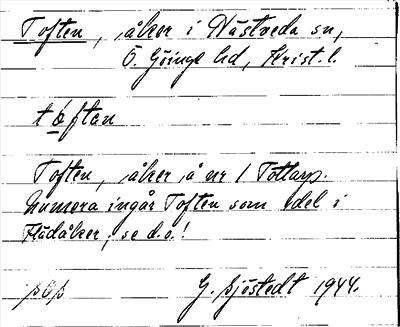 Toften, åker i Nåstveda sn,
Ö. Göinge hd, Krist. l.
tóftan
Toften, åker å nr 1 Tottarp.
Numera ingår Toften som del i
Flödåker, se d.o.!
G. Sjöstedt 1944.